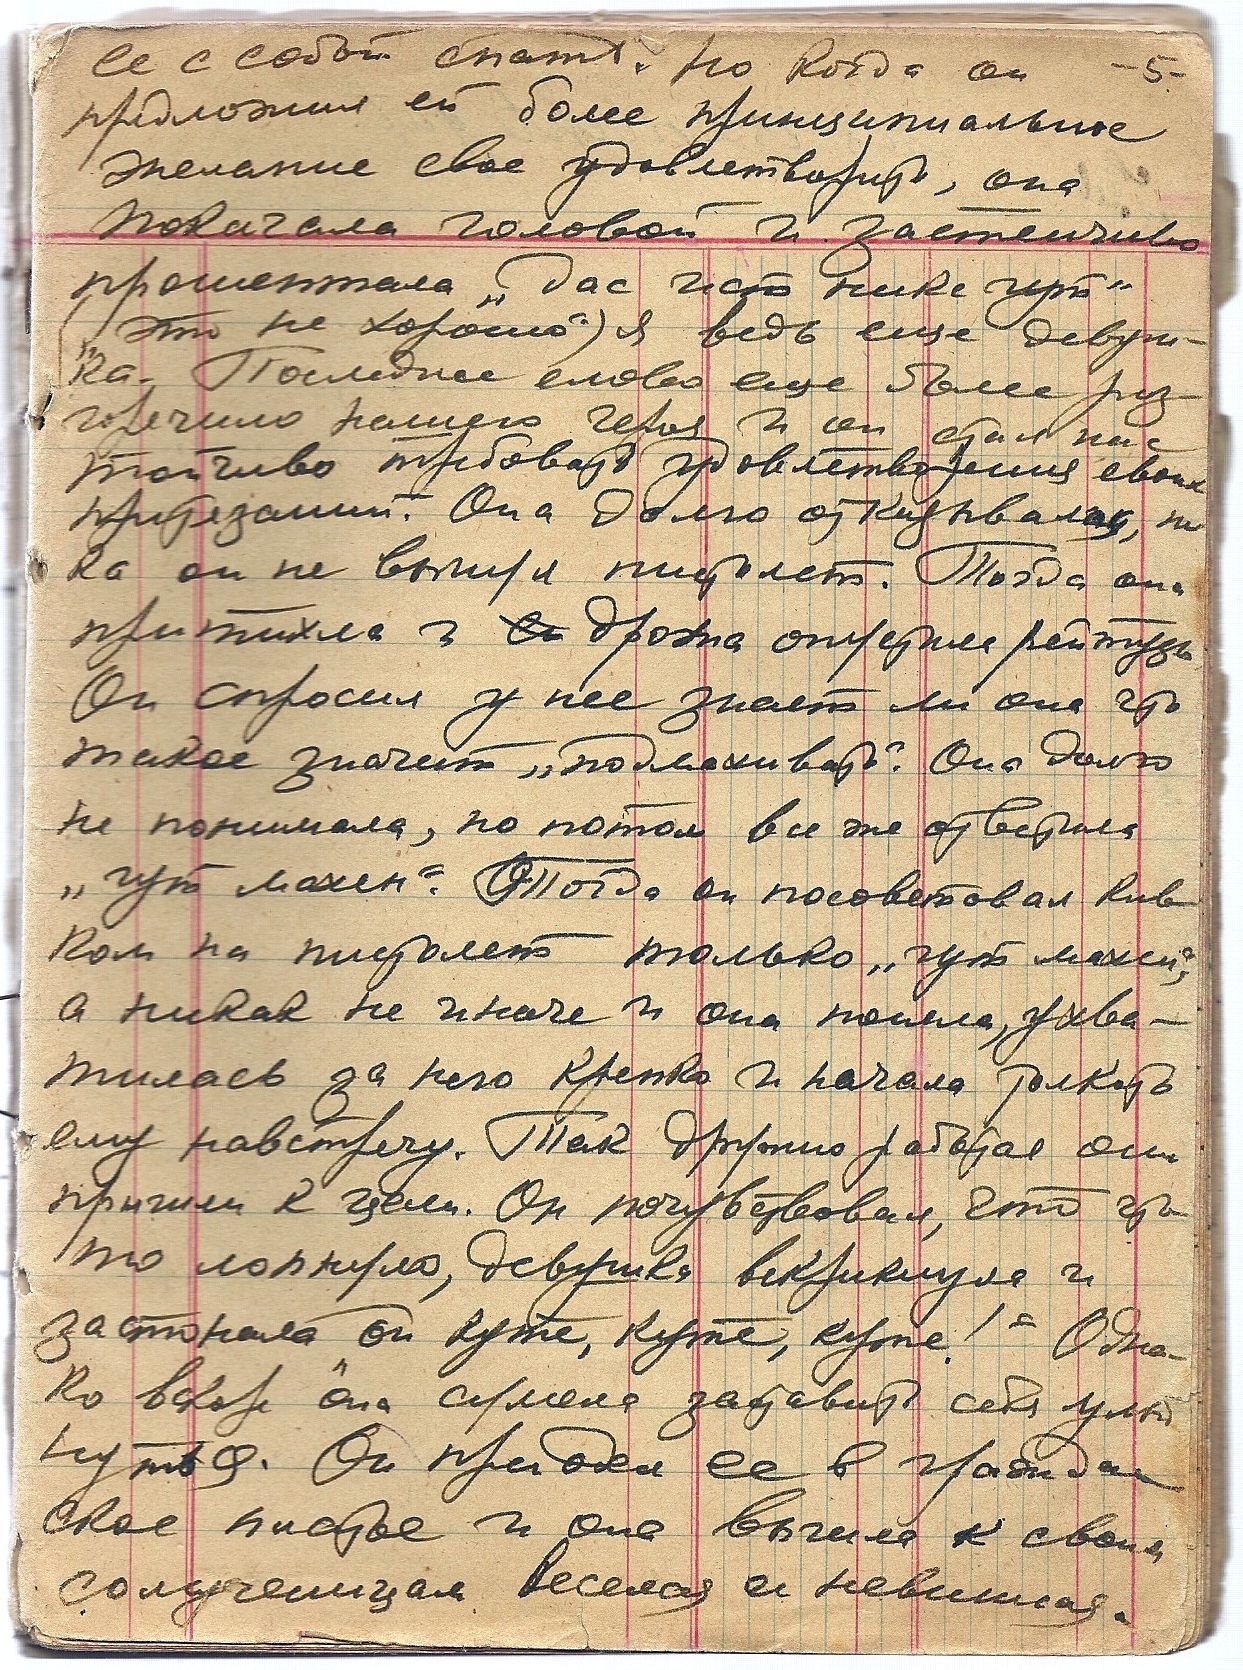 ее с собой спать. Но когда он -5-
предложил ей более принципиальное
желание свое удовлетворить, она
покачала головой и застенчиво
прошептала „дас ист никс гут“
(„это не хорошо“) я ведь еще девуш-
ка. Последнее слово еще более раз-
горячило нашего героя и он стал нас
тойчиво требовать удовлетворения своих
притязаний. Она долго отказывалась, по
ка он не вынул пистолет. Тогда она
притихла и дрожа опустила рейтузы
Он спросил у нее знает ли она что
такое значит „подмахивать“. Она долго
не понимала, но потом все же ответила
„гут махен“. Тогда он посоветовал кив
ком на пистолет только „гут махен“,
а никак не иначе и она поняла, ухва-
тилась за него крепко и начала толкать
ему навстречу. Так дружно работая они
пришли к цели. Он почувствовал, что что
то лопнуло, девушка вскрикнула и
застонала ой куте, куте, куте!“ Одна-
ко вскоре она сумела заставить себя улыб
нуться. Он приодел ее в граждан
ское платье и она вышла к своим
солученицам веселая и невинная.